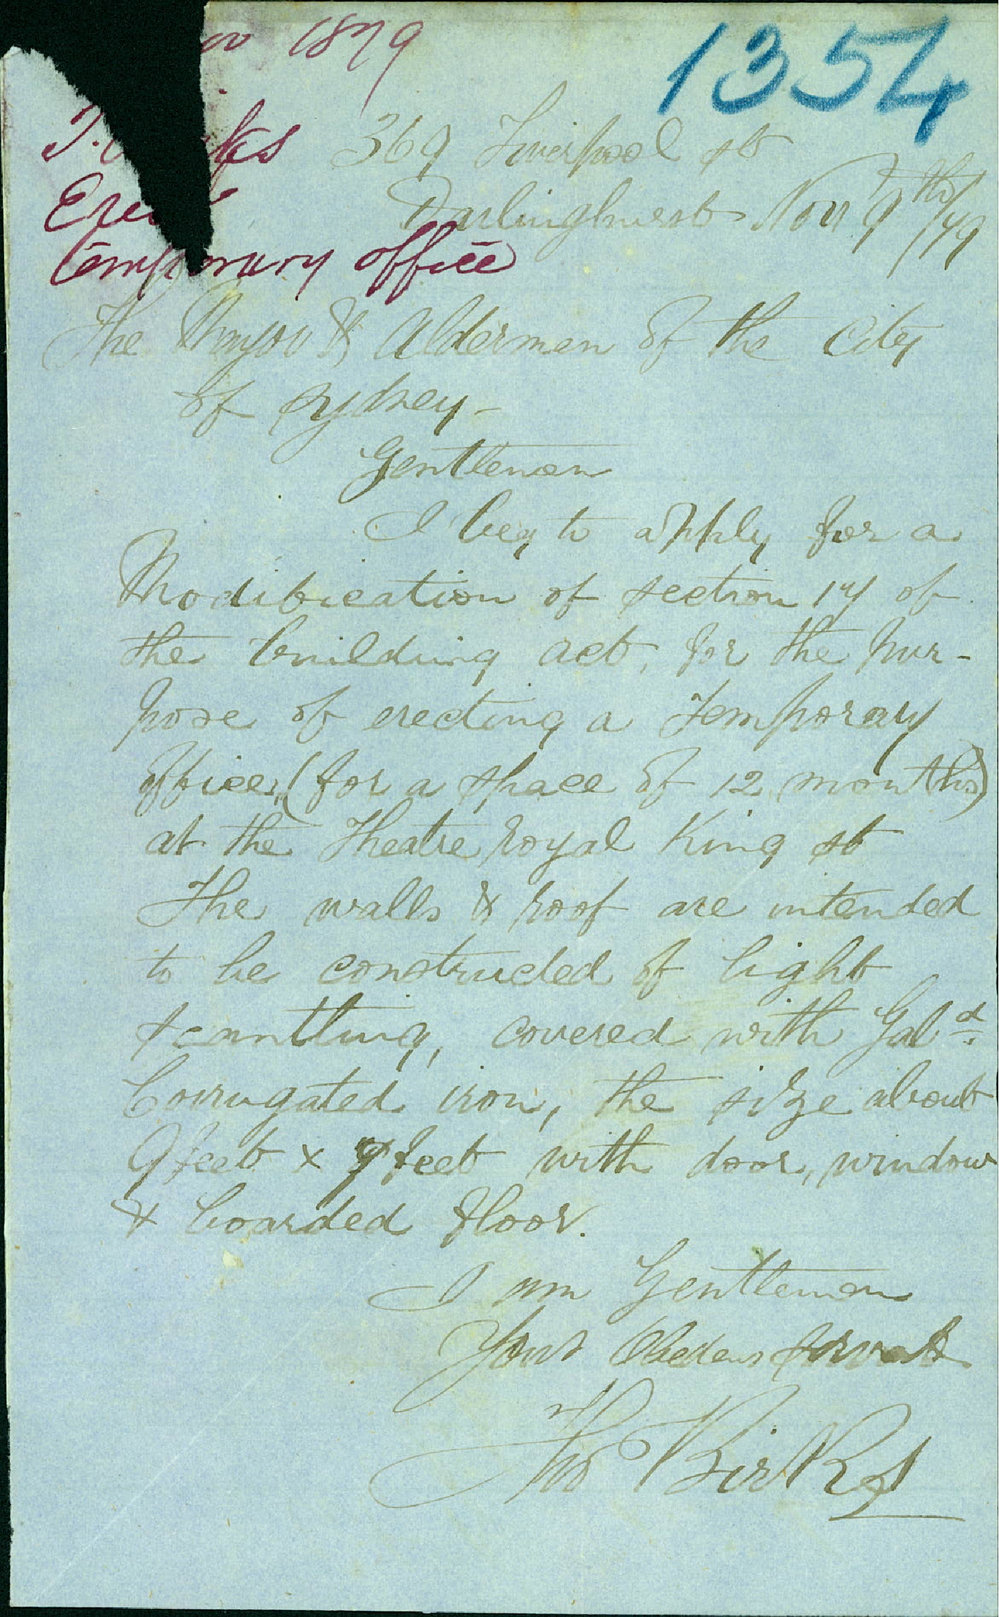 1354
1879
369 Liverpool st
Darlinghurst Nov 9th/79
Temporary office
The Mayor & Aldermen of the City
of Sydney -
Gentlemen
I beg to apply for a
Modification of section 17 of
the building act, for the pur-
pose of erecting a Temporary
office, (for a space of 12 months)
at the Theatre Royal King st
The walls & roof are intended
to be constructed of light
scantling, covered with Gald.
Corrugated iron, the size about
9 feet x 9 feet with door, window
& boarded floor.
I am Gentlemen
Your
Thos Birks